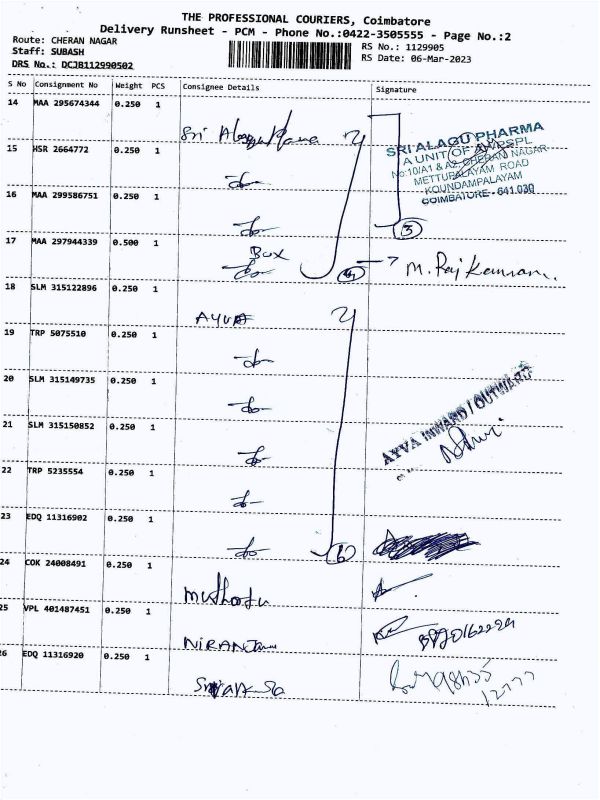 THE PROFESSIONAL COURIERS, Coimbatore
Delivery Runsheet - PCM - Phone No.:0422-3505555 - Page No.:2
Route: CHERAN NAGAR
Staff: SUBASH
DRS No.: DCJB112990502
RS No.: 1129905
RS Date: 06-Mar-2023
S No Consignment No Weight PCS Consignee Details Signature
14 MAA 295674344 0.250 1
Sri
SRI ALAGU PHARMA
A UNIT OF
No:10/A1 & A2, CHERAN NAGAR
METTUPALAYAM ROAD
KOUNDAMPALAYAM
COIMBATORE - 641 030
15 HSR 2664772 0.250 1
do
16 MAA 299586751 0.250 1
do
3
17 MAA 297944339 0.500 1
Box
do
4
M. Raj Kannan.
18 SLM 315122896 0.250 1
AYVA
19 TRP 5075510 0.250 1
do
20 SLM 315149735 0.250 1
do
AYVA INWARD / OUTWARD
21 SLM 315150852 0.250 1
do
22 TRP 5235554 0.250 1
do
23 EDQ 11316902 0.250 1
do
6
24 COK 24008491 0.250 1
Muthootu
25 VPL 401487451 0.250 1
26 EDQ 11316920 0.250 1